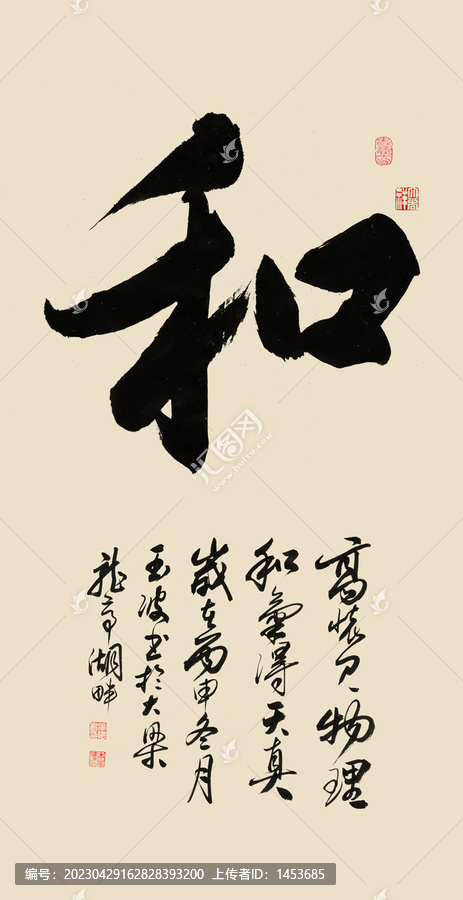 和
高怀见物理
和氣得天真
歲在丙申冬月
玉波书於大梁
龍亭湖畔
汇图网
www.huitu.com
编号：20230429162828393200 上传者ID：1453685